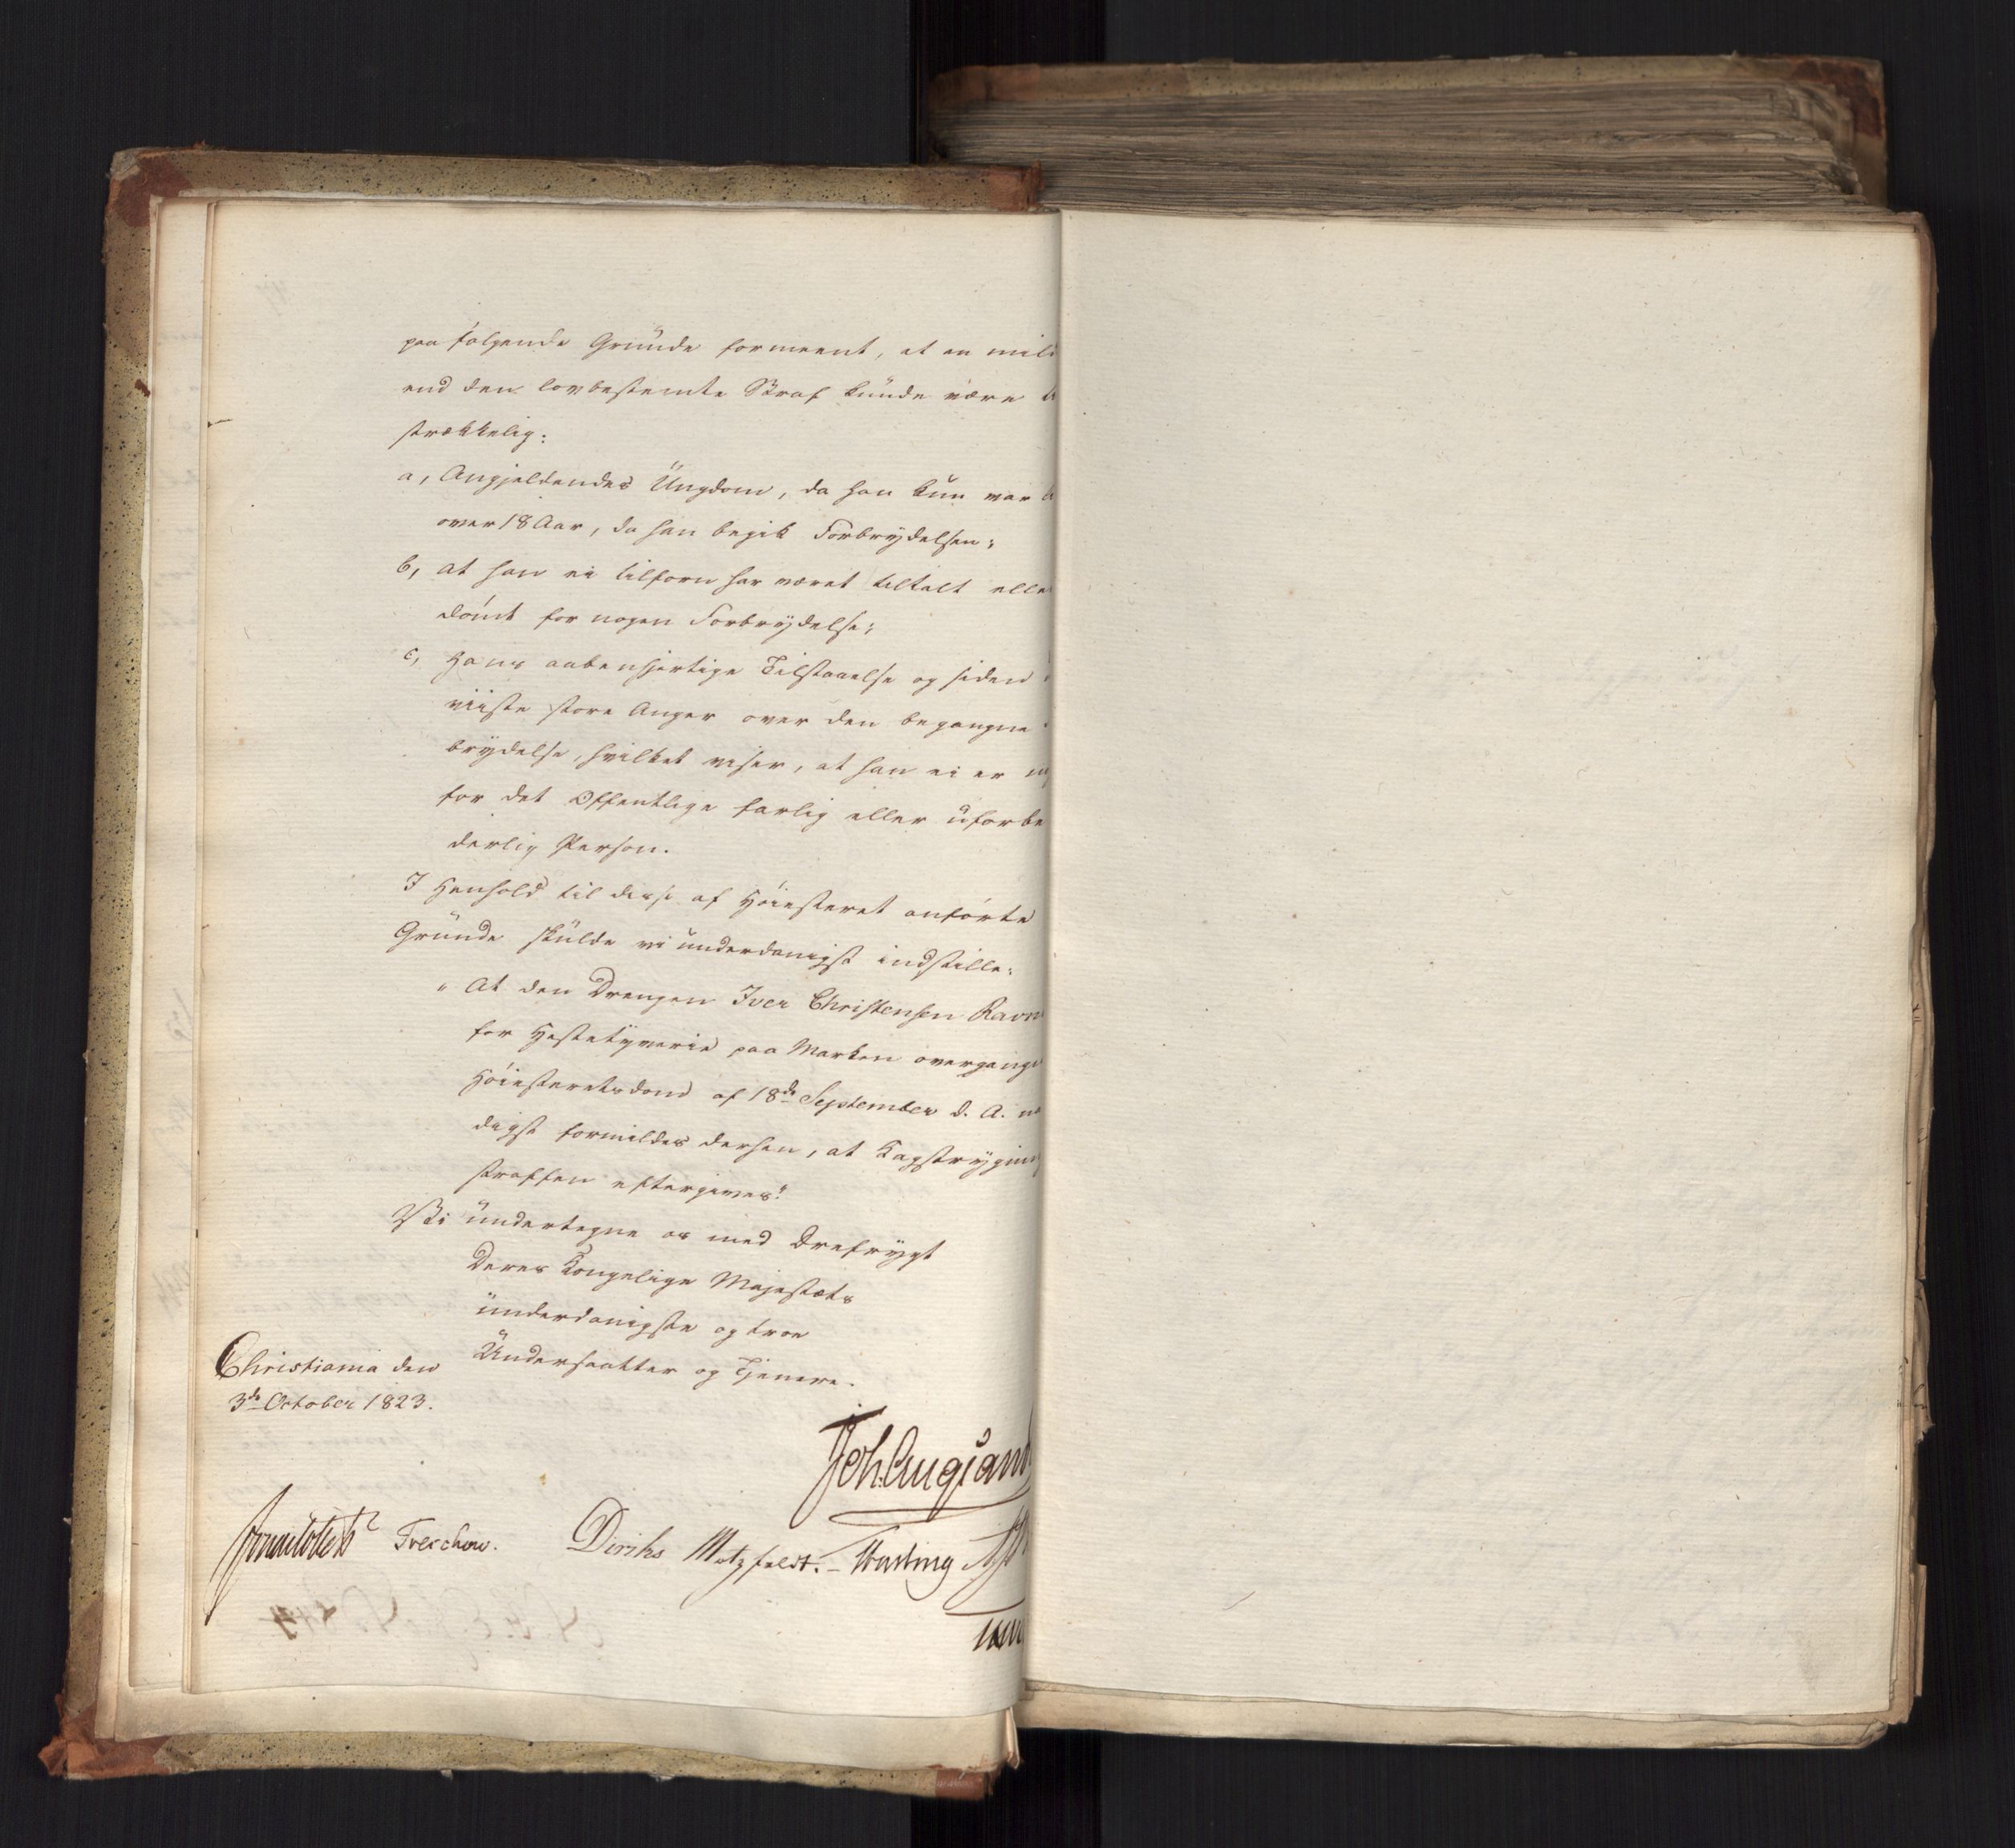 paa følgende Grunde formeent, at en mild
end den lovbestemte Straf kunde være
strækkelig:
a, Angjeldendes Ungdom, da han kun var
over 18 Aar, da han begik Forbrydelsen;
b, at han ei tilforn har været tiltalt elle
dømt for nogen Forbrydelse;
c, Hans aabenhjertige Tilstaaelse og siden
viiste store Anger over den begangne
brydelse, hvilket viser, at han ei er
for det Offentlige farlig eller uforbe
derlig Person.
I Henhold til disse af Høiesteret anførte
Grunde skulde vi underdanigst indstille:
"At den Drengen Iver Christensen Ravn
for Hestetyverie paa Marken overgangn
Høiesteretsdom af 18de September d. A. na
digst formildes derhen, at Kagstrygning
straffen eftergives"
Vi undertegne os med Ærefrygt
Deres Kongelige Majestæts
underdanigste og troe
Undersaatter og Tjenere.
Christiania den
3de October 1823.
Joh. Aug. Sand
Treschow. Diriks Motzfeldt. Fasting